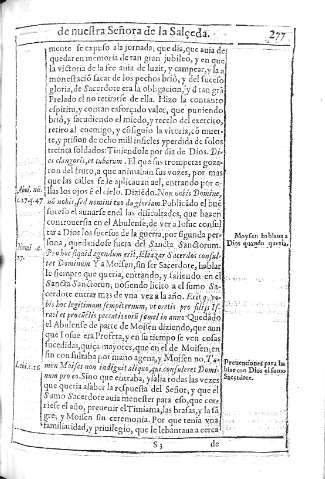 de nuestra Señora de la Salçeda. 277
mente se expuso a la jornada, que dia, que auia de
quedar en memoria de tan gran jubileo, y en que
la victoria de la fee auia de luzir, y campear, y la a
monestació sacar de los pechos brió, y del sucesso
gloria, de Sacerdote era la obligacion, y d tan grā
Prelado el no retirarse de ella. Hizo la contanto
espiritu, y contan esforçado valor, que poniendo
brió, y sacudiendo el miedo, y recelo del exercito,
retiro al enemigo, y cósiguio la vitoria, có muer-
te, y prision de ocho mil infieles perdida de solos
treinta soldados: Tiniendola por dia de Dios. Di-
es clangoris, et tubarum. El que sus trompetas goza-
ron del fruto, a que animauan sus vozes, por mas
que las calles se le aplicauan del, entrando por e-
llas los ojos é el cielo. Diziédo. Non nobis Domine,
nō nobis, sed nomini tuo da gloriam. Publicado el bué
sucesso el aunarse en el las dificultades, que hazen
controuersia en el Abulense, de ver a Iosue consul
tar a Dios los sucesos de la guerra, por segunda per
sona, quedandose fuera del Sancta Sanctorum.
Pro hoc siquid agendum erit, Eleazar Sacerdos consul-
tet Dominum Y a Moisen, sin ser Sacerdote, hablar
le siempre que queria, entrando, y saliendo en el
Sancta Sanctorum, no siendo licito a el sumo Sa-
cerdote entrar mas de vna vez a la año.
bis hoc legitimum sempiternum, vt oretis pro filijs Is-
rael et procūctis peccatis eorū semel in anno Quedado
el Abulense de parte de Moisen diziendo, que aun
que Iosue era Profeta, y en su tiempo se ven cosas
sucedidas, quiça mayores, que en el de Moisen, en
sin consultaba por mano agena, y Moisen no. Ta-
men Moises non indiguit aliquo, qui consuleret Domi-
num pro eo. Sino que entraba, y salia todas las vezes
que queria a saber la respuesta del Señor, y que el
Sumo Sacerdote auia menester para eso, que cor-
riese el año, preuenir el Timiama, las brasas, y la sā-
gre, y Moisen sin ceremonia. Por que tenia vna
familiaridad, y priuilegio, que le lebantana a cerca
S 3 de
Moysen hablaua a
Dios quando queria.
Pretenciones para ha
blar con Dios el sumo
Sacerdote.